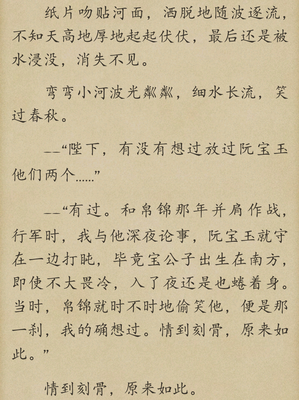 纸片吻贴河面，洒脱地随波逐流，
不知天高地厚地起起伏伏，最后还是被
水浸没，消失不见。
弯弯小河波光粼粼，细水长流，笑
过春秋。
——“陛下，有没有想过放过阮宝玉
他们两个……”
——“有过。和帛锦那年并肩作战，
行军时，我与他深夜论事，阮宝玉就守
在一边打盹，毕竟宝公子出生在南方，
即使不大畏冷，入了夜还是也蜷着身。
当时，帛锦就时不时地偷笑他，便是那
一刹，我的确想过。情到刻骨，原来如
此。”
情到刻骨，原来如此。